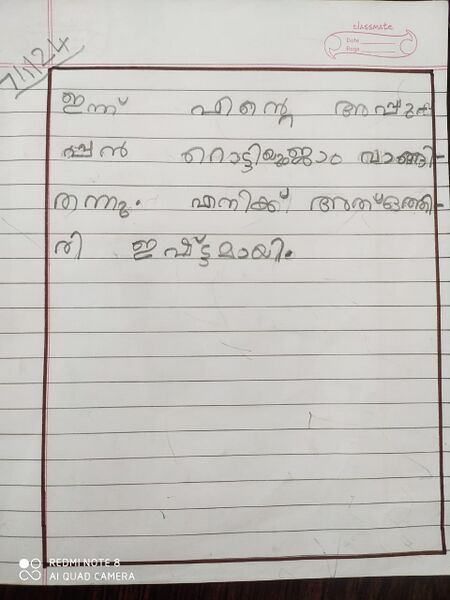 classmate
Date
Page
7/1/24
ഇന്ന് എന്റെ അപ്പു
പ്പൻ റൊട്ടിയുംജാം വാങ്ങി-
തന്നു. എനിക്ക് അത്ഒത്തി-
രി ഇഷ്ട്ടമായി.
REDMI NOTE 8
AI QUAD CAMERA